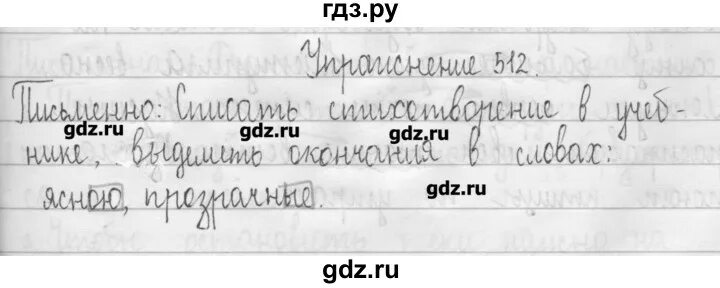 гдз.ру
Упражнение 512.
Письменно: Списать стихотворение в учеб-
gdz.ru gdz.ru gdz.ru
нике, выделить окончания в словах:
gdz.ru
ясною, прозрачные.
gdz.ru